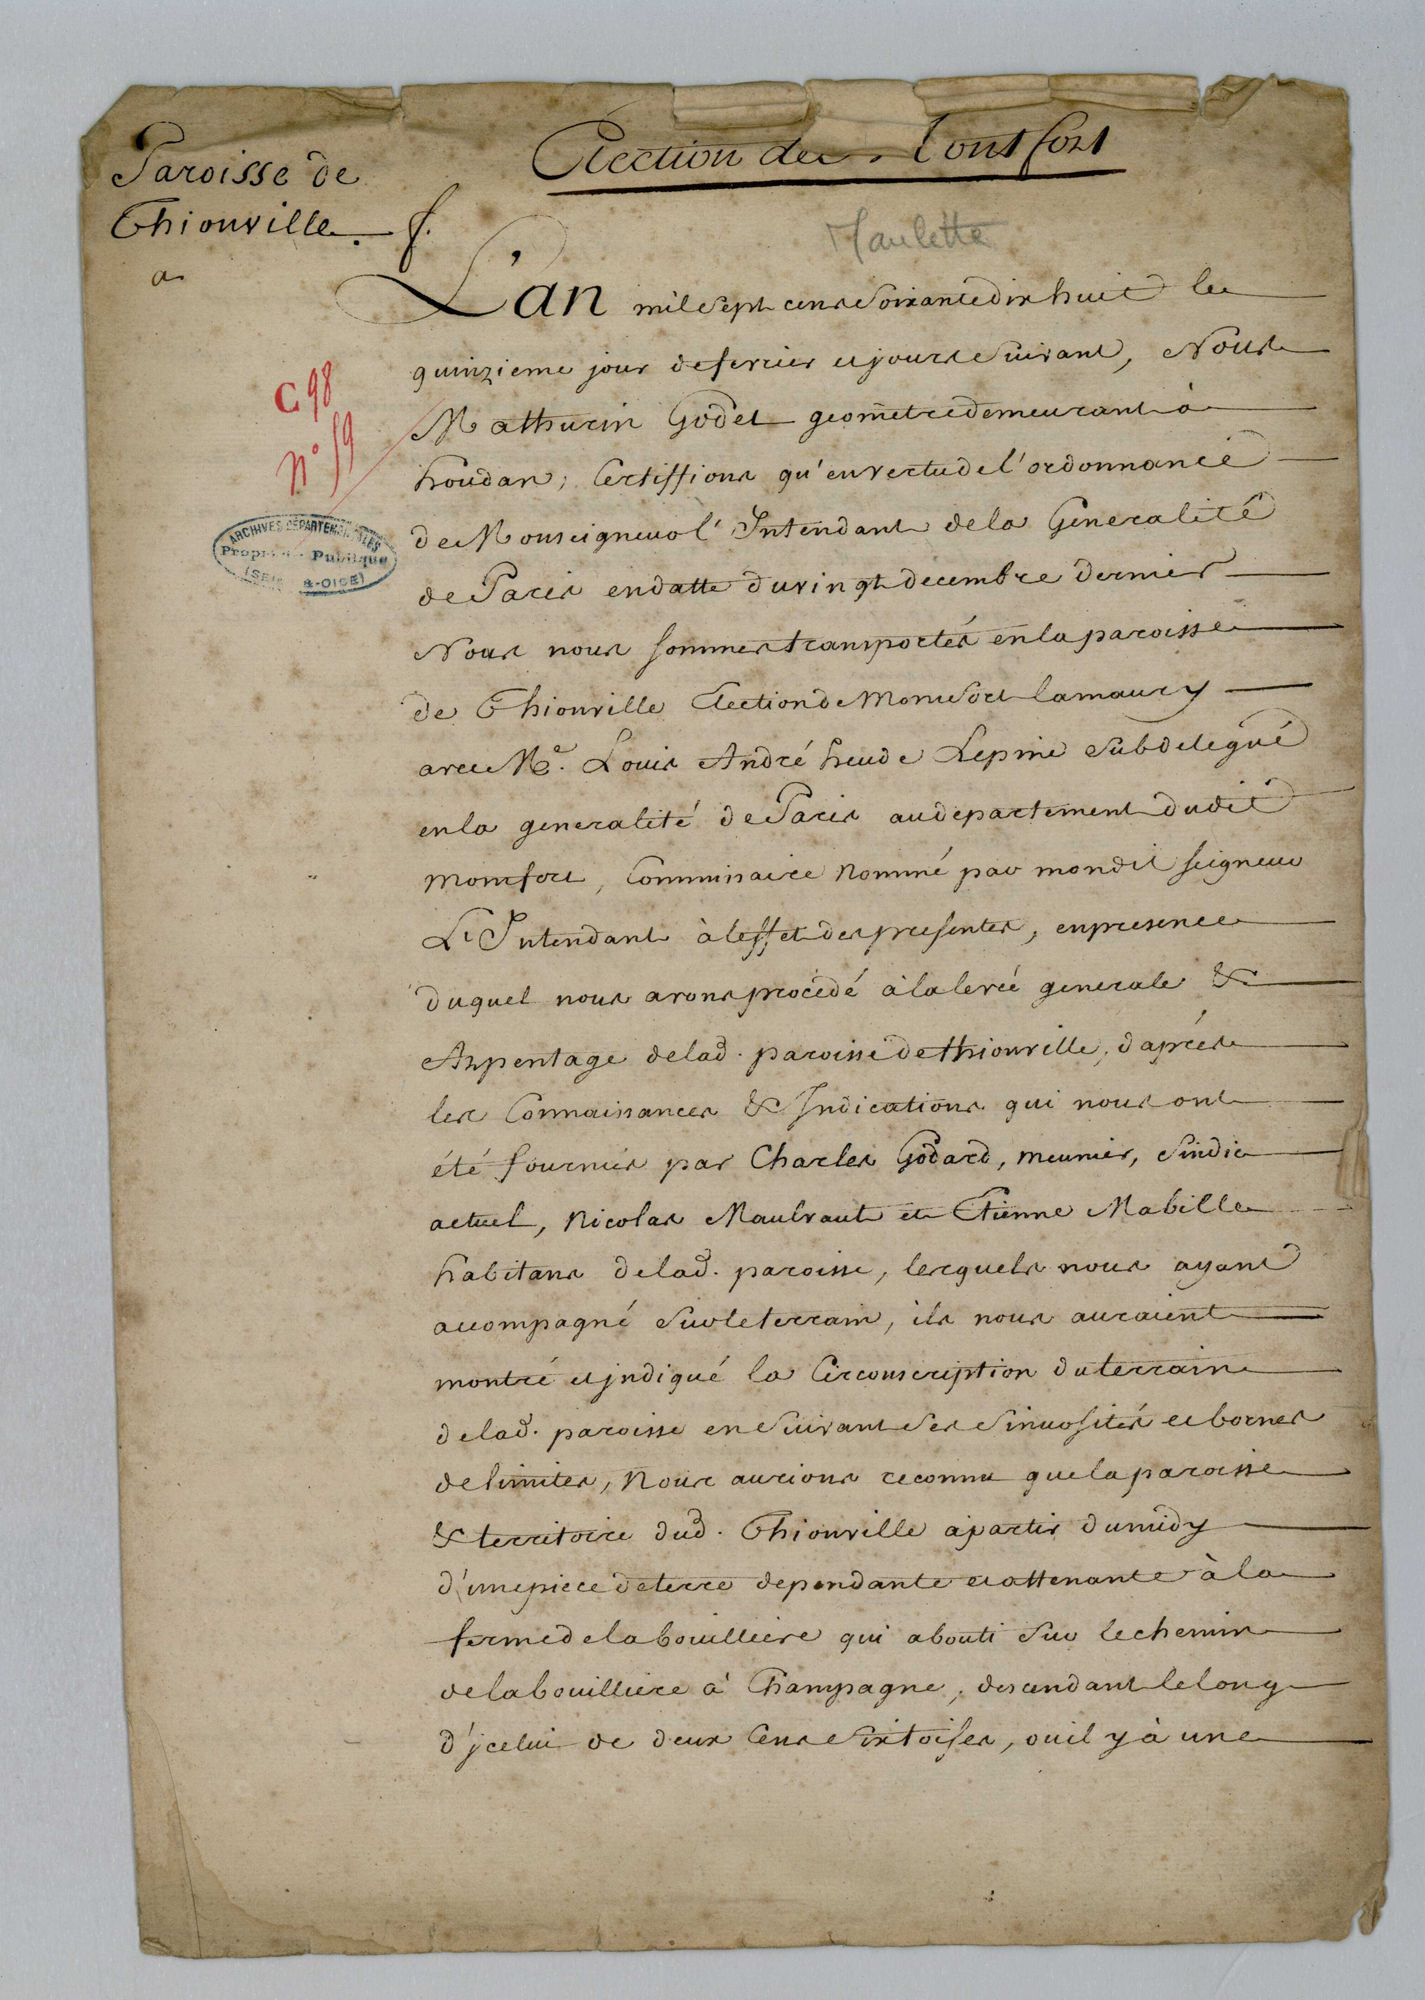 Election de Montfort
Paroisse de
Thionville. f.
a
Maulette
L'an mil sept cent soixante dix huit le
quinzieme jour de fevrier et jours suivant, Nous
Mathurin Godet geometre demeurant à
houdan, Certiffions qu'en vertu de l'ordonnance
de Monseigneur l'Intendant de la Generalité
de Paris en datte du vingt decembre dernier
Nous nous sommes transportés en la paroisse
de Thionville Election de Montfort lamaury
avec Me. Louis André heude Lepine subdelegué
en la generalité de Paris au departement dudit
Montfort, Commissaire nommé par mondit seigneur
L'Intendant à l'effet des presentes, en presence
duquel nous avons procédé à la levée generale &
Arpentage de lad. paroisse de thionville, d'après
les Connaissances & Indications qui nous ont
été fournies par Charles Godard, meunier, Sindic
actuel, Nicolas Maulvaut et Etienne Mabille
habitans de lad. paroisse, lesquels nous ayant
accompagné sur le terrain, ils nous auraient
montré et jndiqué la Circonscription du terrain
de lad. paroisse en suivant ses sinuosités et bornes
de limites, Nous aurions reconnu que la paroisse
& territoire dud. Thionville à partir du midy
d'une piece de terre dependante et attenante à la
ferme de la bouilliere qui abouti sur le chemin
de la bouilliere à Champagne, descendant le long
d'jcelui de deux Cens six toises, ou il y à une
C 98
N° 59
ARCHIVES DÉPARTEMENTALES
Propriété Publique
(SEINE-&-OISE)